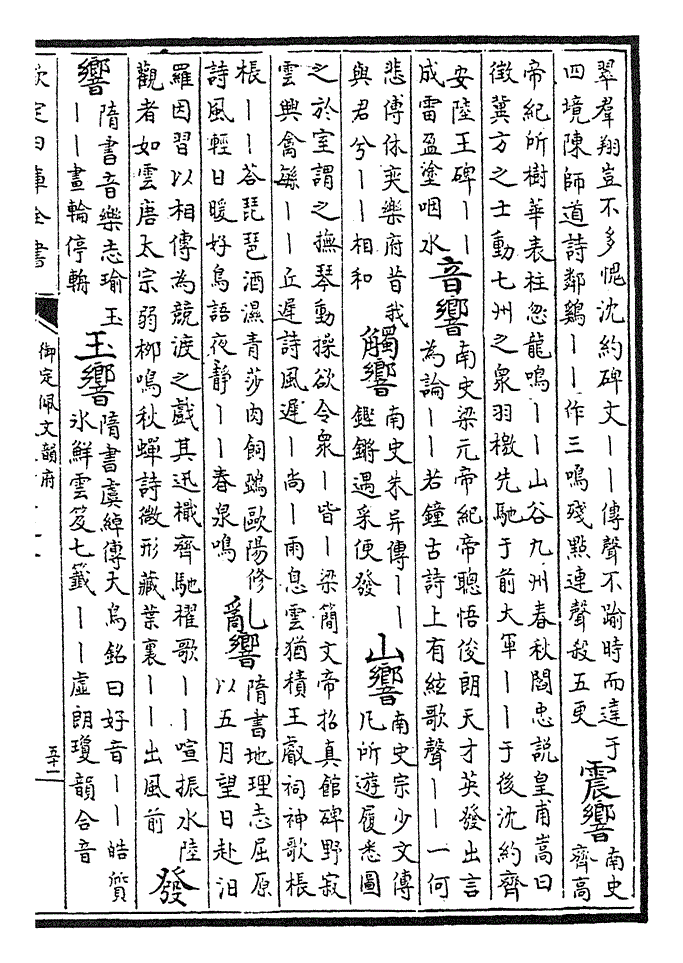 翠羣翔豈不多愧沈約碑文丨丨傳聲不踰時而達于
四境陳師道詩鄰鷄丨丨作三鳴殘點連聲殺五更
震響
南史
齊高
帝紀所樹華表柱忽龍鳴丨丨山谷九州春秋閻忠說皇甫嵩曰
徵冀方之士動七州之衆羽檄先馳于前大軍丨丨于後沈約齊
安陸王碑丨丨
成雷盈塗咽水
音響
南史梁元帝紀帝聰悟俊朗天才英發出言
為論丨丨若鐘古詩上有絃歌聲丨丨一何
悲傅休奕樂府昔我
與君兮丨丨相和
觸響
南史朱异傳丨丨
鏗鏘遇采便發
山響
南史宗少文傳
凡所遊履悉圖
之於室謂之撫琴動操欲令衆丨皆丨梁簡文帝招真館碑野寂
雲興禽繇丨丨丘遲詩風遲丨尚丨雨息雲猶積王叡祠神歌棖
棖丨丨荅琵琶酒濕青莎肉飼鵶歐陽修
詩風輕日暖好鳥語夜靜丨丨春泉鳴
亂響
隋書地理志屈原
以五月望日赴汨
羅因習以相傳為競渡之戲其迅檝齊馳櫂歌丨丨喧振水陸
觀者如雲唐太宗弱栁鳴秋蟬詩微形藏葉裏丨丨出風前
發
響
隋書音樂志瑜玉
丨丨畫輪停輈
玉響
隋書虞綽傳天鳥銘曰好音丨丨皓質
氷鮮雲笈七籤丨丨虛朗瓊韻合音
欽定四庫全書
御定佩文韻府
五十二